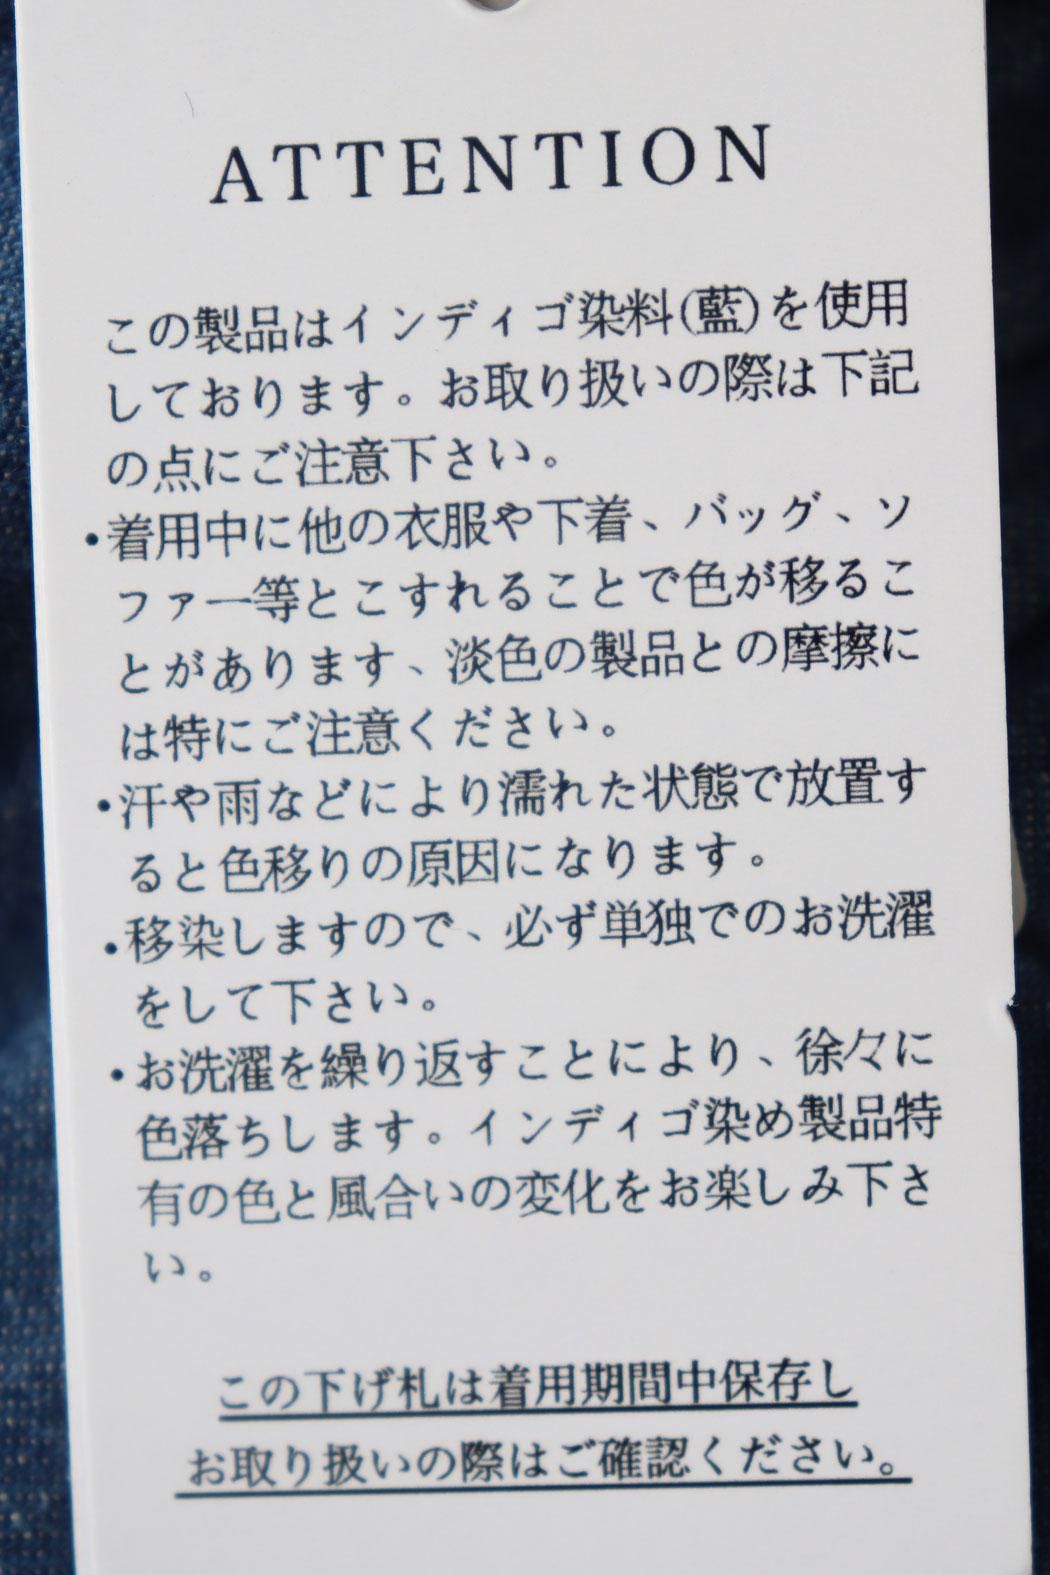 ATTENTION
この製品はインディゴ染料(藍)を使用
しております。お取り扱いの際は下記
の点にご注意下さい。
・着用中に他の衣服や下着、バッグ、ソ
ファー等とこすれることで色が移るこ
とがあります、淡色の製品との摩擦に
は特にご注意ください。
・汗や雨などにより濡れた状態で放置す
ると色移りの原因になります。
・移染しますので、必ず単独でのお洗濯
をして下さい。
・お洗濯を繰り返すことにより、徐々に
色落ちします。インディゴ染め製品特
有の色と風合いの変化をお楽しみ下さ
い。
この下げ札は着用期間中保存し
お取り扱いの際はご確認ください。